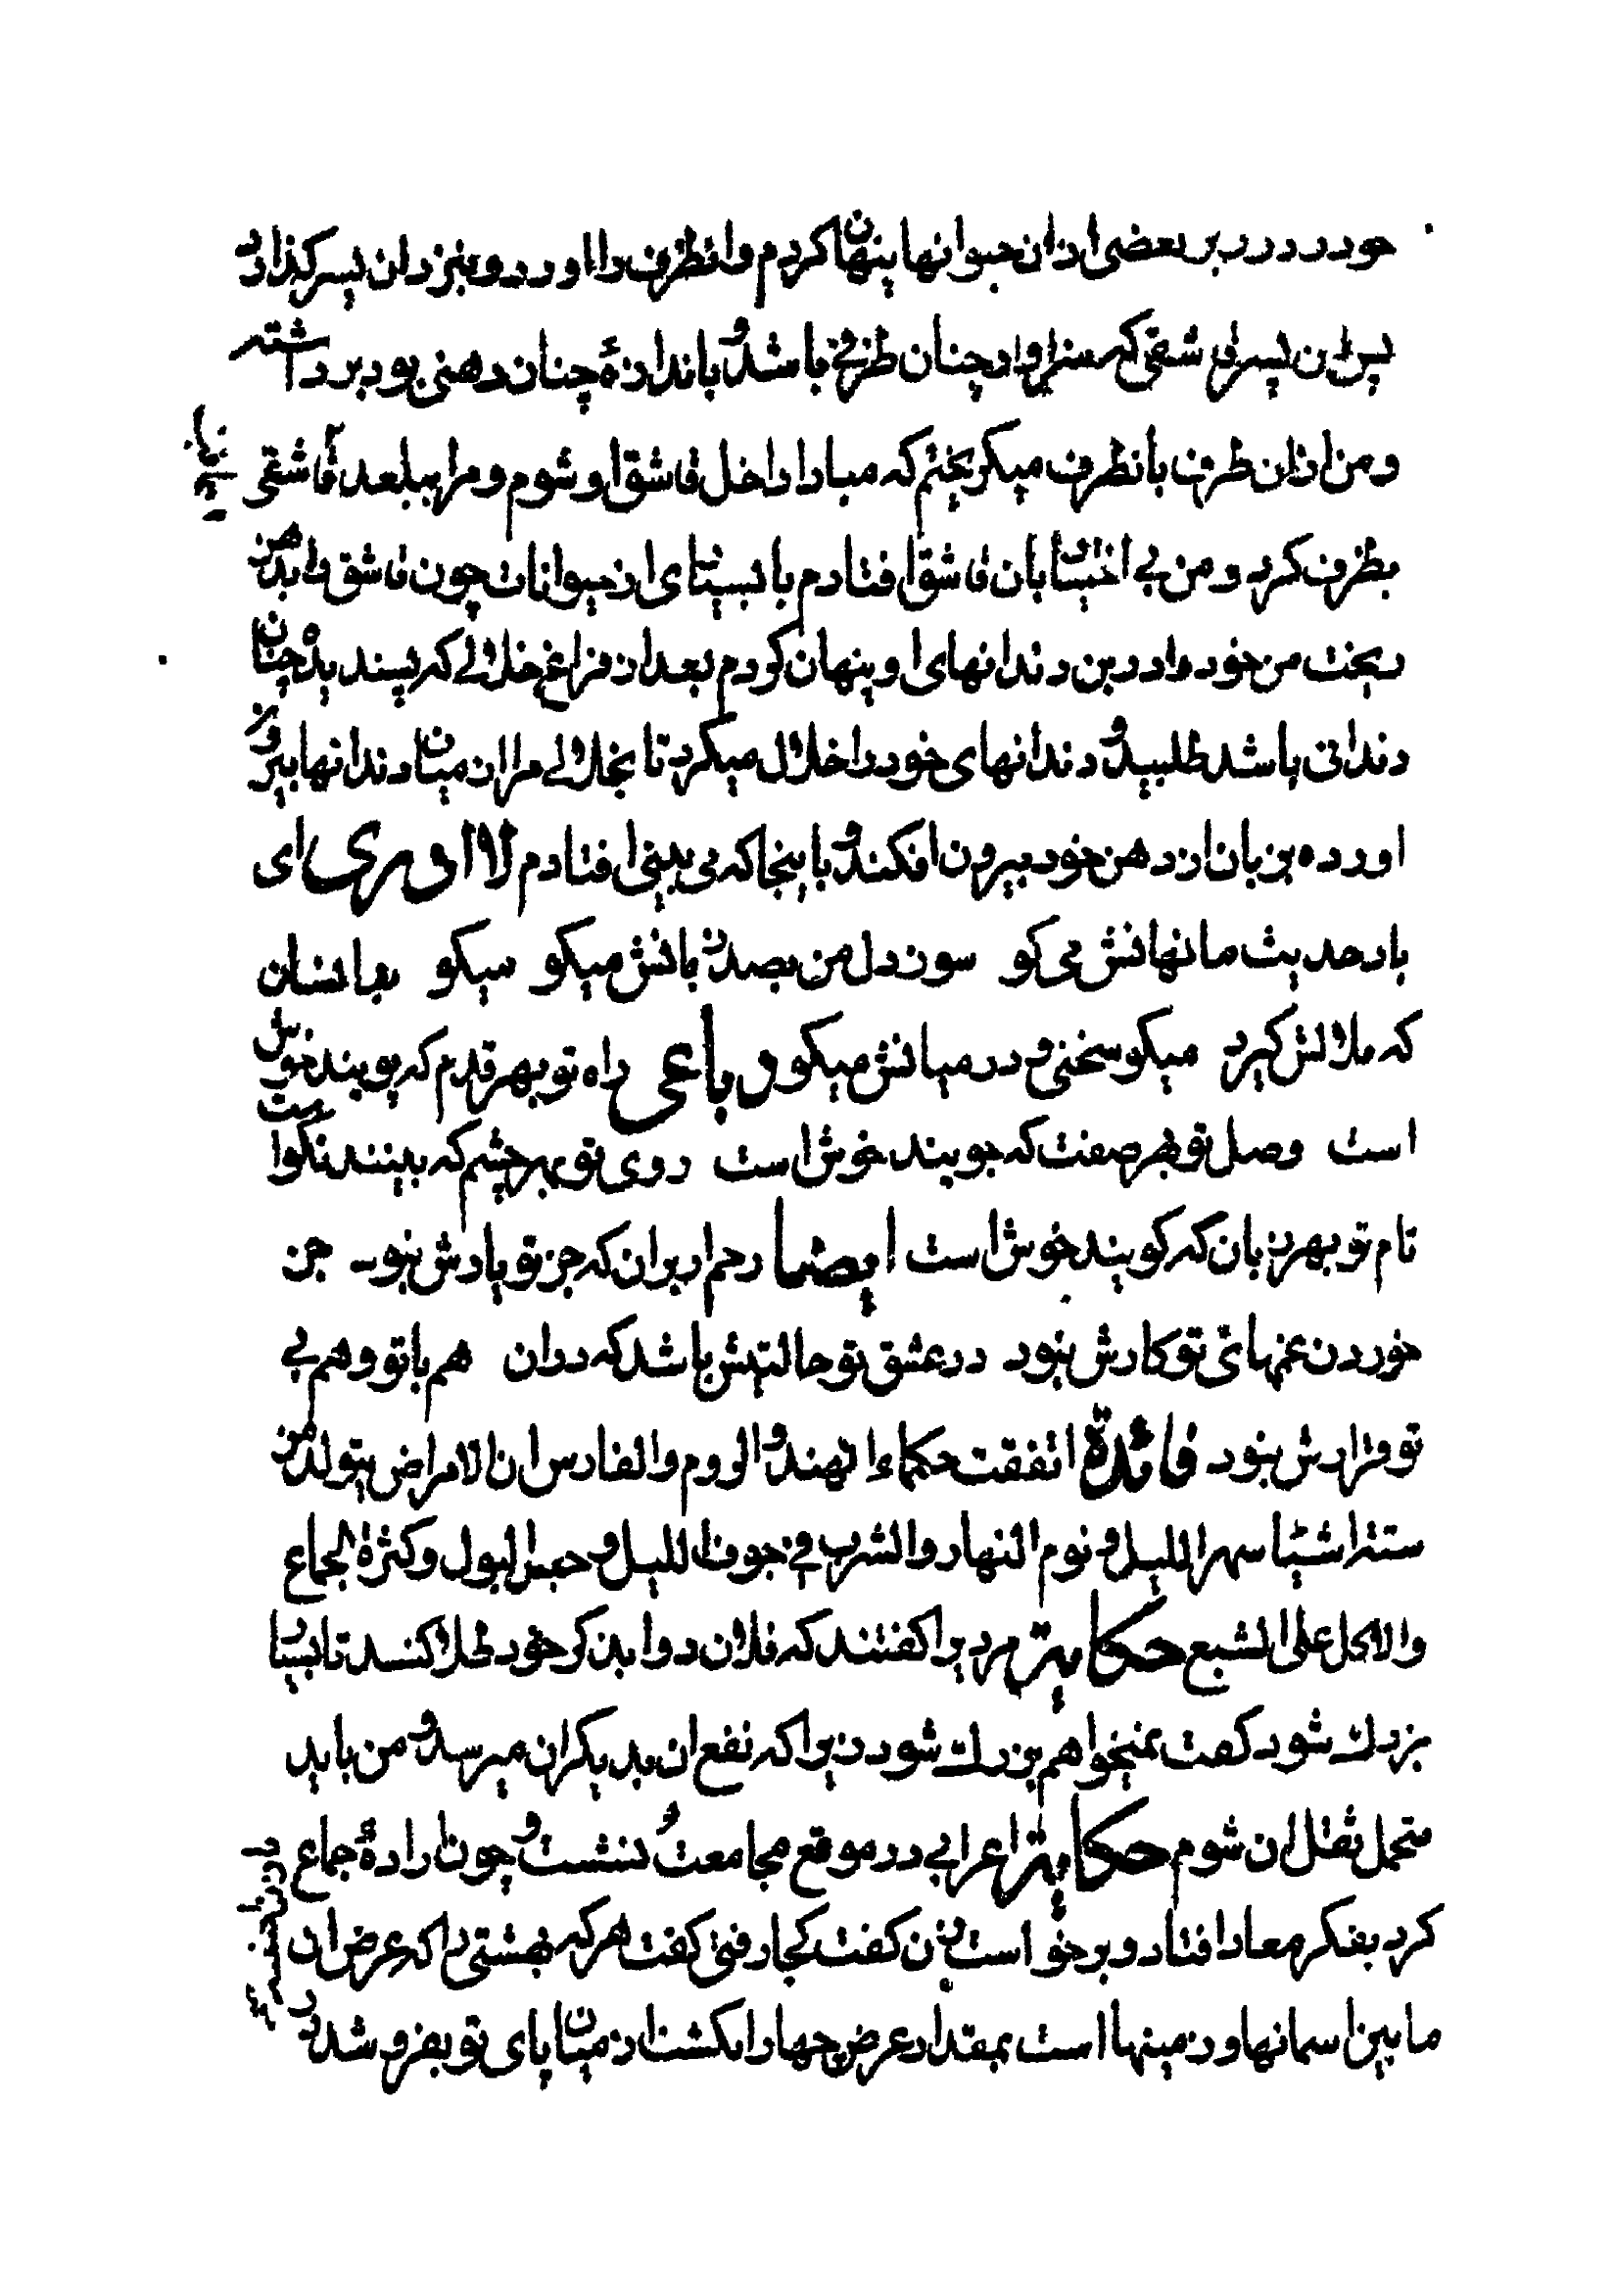 خود در زیر بعضی از ان حیوانها پنهان کردم و انظرف را اوردو بنزد ان پسر کذارد
پس ان پسر قاشقی که سزاوار چنان ظرفی باشد و باندازهٔ چنان دهنی بود برداشته
و من از ان طرف بانطرف میکریختم که مبادا داخل قاشق او شوم و مرا ببلعد قاشقی
بظرف کرد و من بی اختیار بان قاشق افتادم با بسیاری از حیوانات چون قاشق را بدهن
ریخت من خود را در بن دندانهای او پنهان کردم بعد از فراغ خلالی که پسندیده چنان
دندانی باشد طلبید و دندانهای خود را خلال میکرد تا بخلالی مرا از میان دندانها بیرون
اورده بزبان از دهن خود بیرون افکند و باینجا که می بینی افتادم لا ادری ای
باد حدیث ما نهانش می کو سوز دل من بصد زبانش میکو میکو نه بدانسان
که ملالش کیرد میکو سخنی و در میانش میکو رباعی راه تو بهر قدم که پویند خوش
است وصل تو بهر صفت که جویند خوش است روی تو بهر چشم که بینند نکواست
نام تو بهر زبان که کویند خوش است ایضا رحم ار بران که جز تو یارش نبود جز
خوردن غمهای تو کارش نبود در عشق تو حالتیش باشد که دران هم با تو و هم بی
تو قرارش نبود فائدة اتفقت حکماء الهند و الروم و الفارس ان الامراض یتولد من
ستة اشیا سهر اللیل و نوم النهار و الشرب فی جوف اللیل و حبس البول و کثرة الجماع
و الاکل علی الشبع حکایة مردیرا کفتند که فلان دوا بذکر خود طلا کنند تا بسیار
بزرک شود کفت نمیخواهم بزرک شود زیرا که نفع ان بدیکران میرسد و من باید
متحمل ثقل ان شوم حکایة اعرابی در موقع مجامعت نشست و چون ارادهٔ جماع
کرد بفکر معاد افتاد و برخواست زن کفت کجا رفتی کفت هر که بهشتی را که عرض ان
ما بین اسمانها و زمینها است بمقدار عرض چهار انکشت از میان پای تو بفروشد